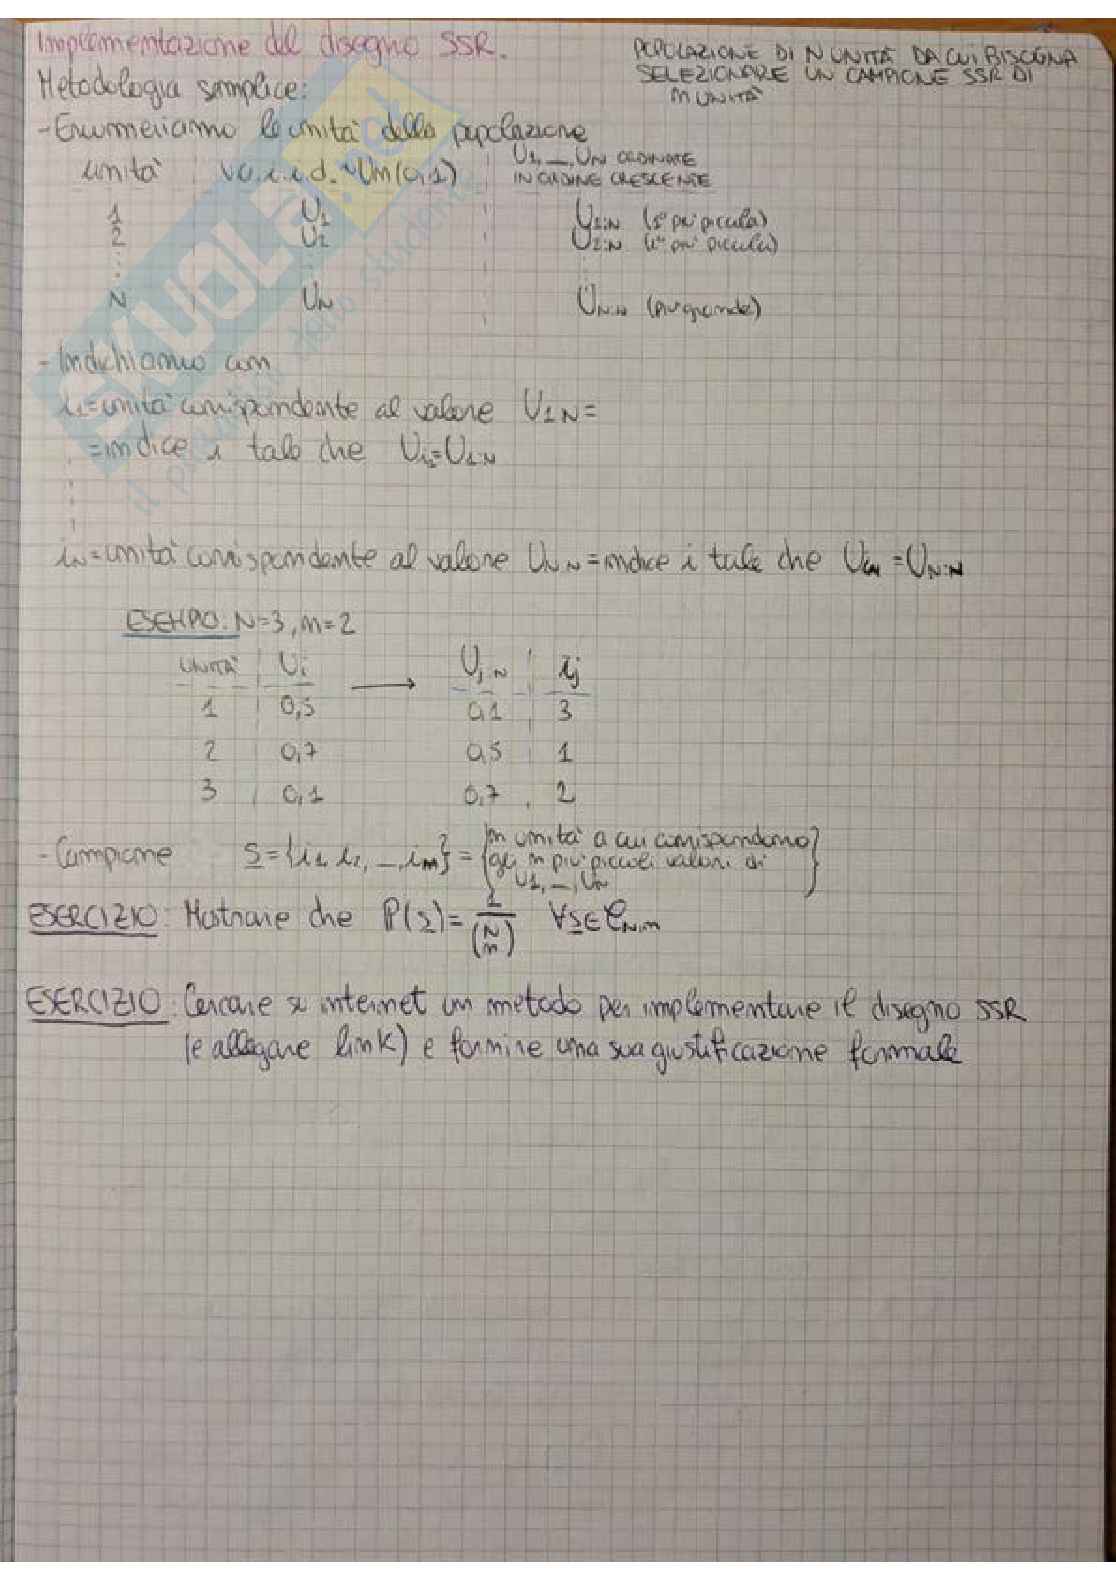 Implementazione del disegno SSR.
POPOLAZIONE DI N UNITÀ DA CUI BISOGNA
SELEZIONARE UN CAMPIONE SSR DI
n UNITÀ
Metodologia semplice:
- Enumeriamo le unità della popolazione
unità v.c. i.i.d. ~Un(0,1) U1, _, UN ORDINATE
IN ORDINE CRESCENTE
1 U1 U1:N (1ª più piccola)
2 U2 U2:N (2ª più piccola)
N UN UN:N (più grande)
- Indichiamo con
i1=unità corrispondente al valore U1:N=
=indice i tale che Ui1=U1:N
iN=unità corrispondente al valore UN:N=indice i tale che UiN=UN:N
ESEMPIO: N=3, n=2
UNITÀ Ui → Uj:N ij
1 0,5 0,1 3
2 0,7 0,5 1
3 0,1 0,7 2
- Campione S={i1, i2, _, in}={n unità a cui corrispondono
gli n più piccoli valori di
U1, _, UN}
ESERCIZIO: Mostrare che P(S)=1/(N n) ∀S∈CN,n
ESERCIZIO: Cercare su internet un metodo per implementare il disegno SSR
(e allegare link) e fornire una sua giustificazione formale
SKUOLA.net